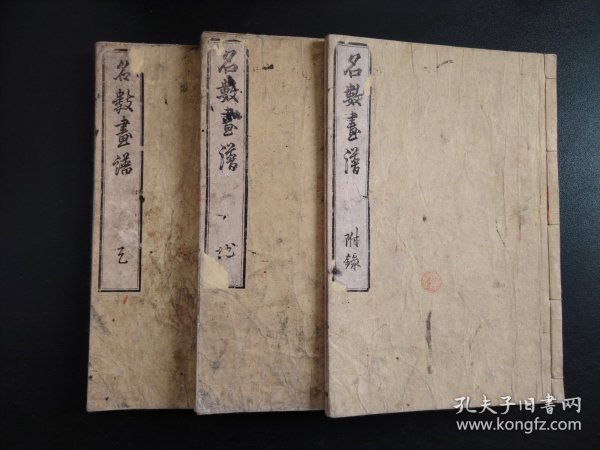 名數畫譜
附錄
名數畫譜
地
名數畫譜
孔夫子旧書网
www.kongfz.com